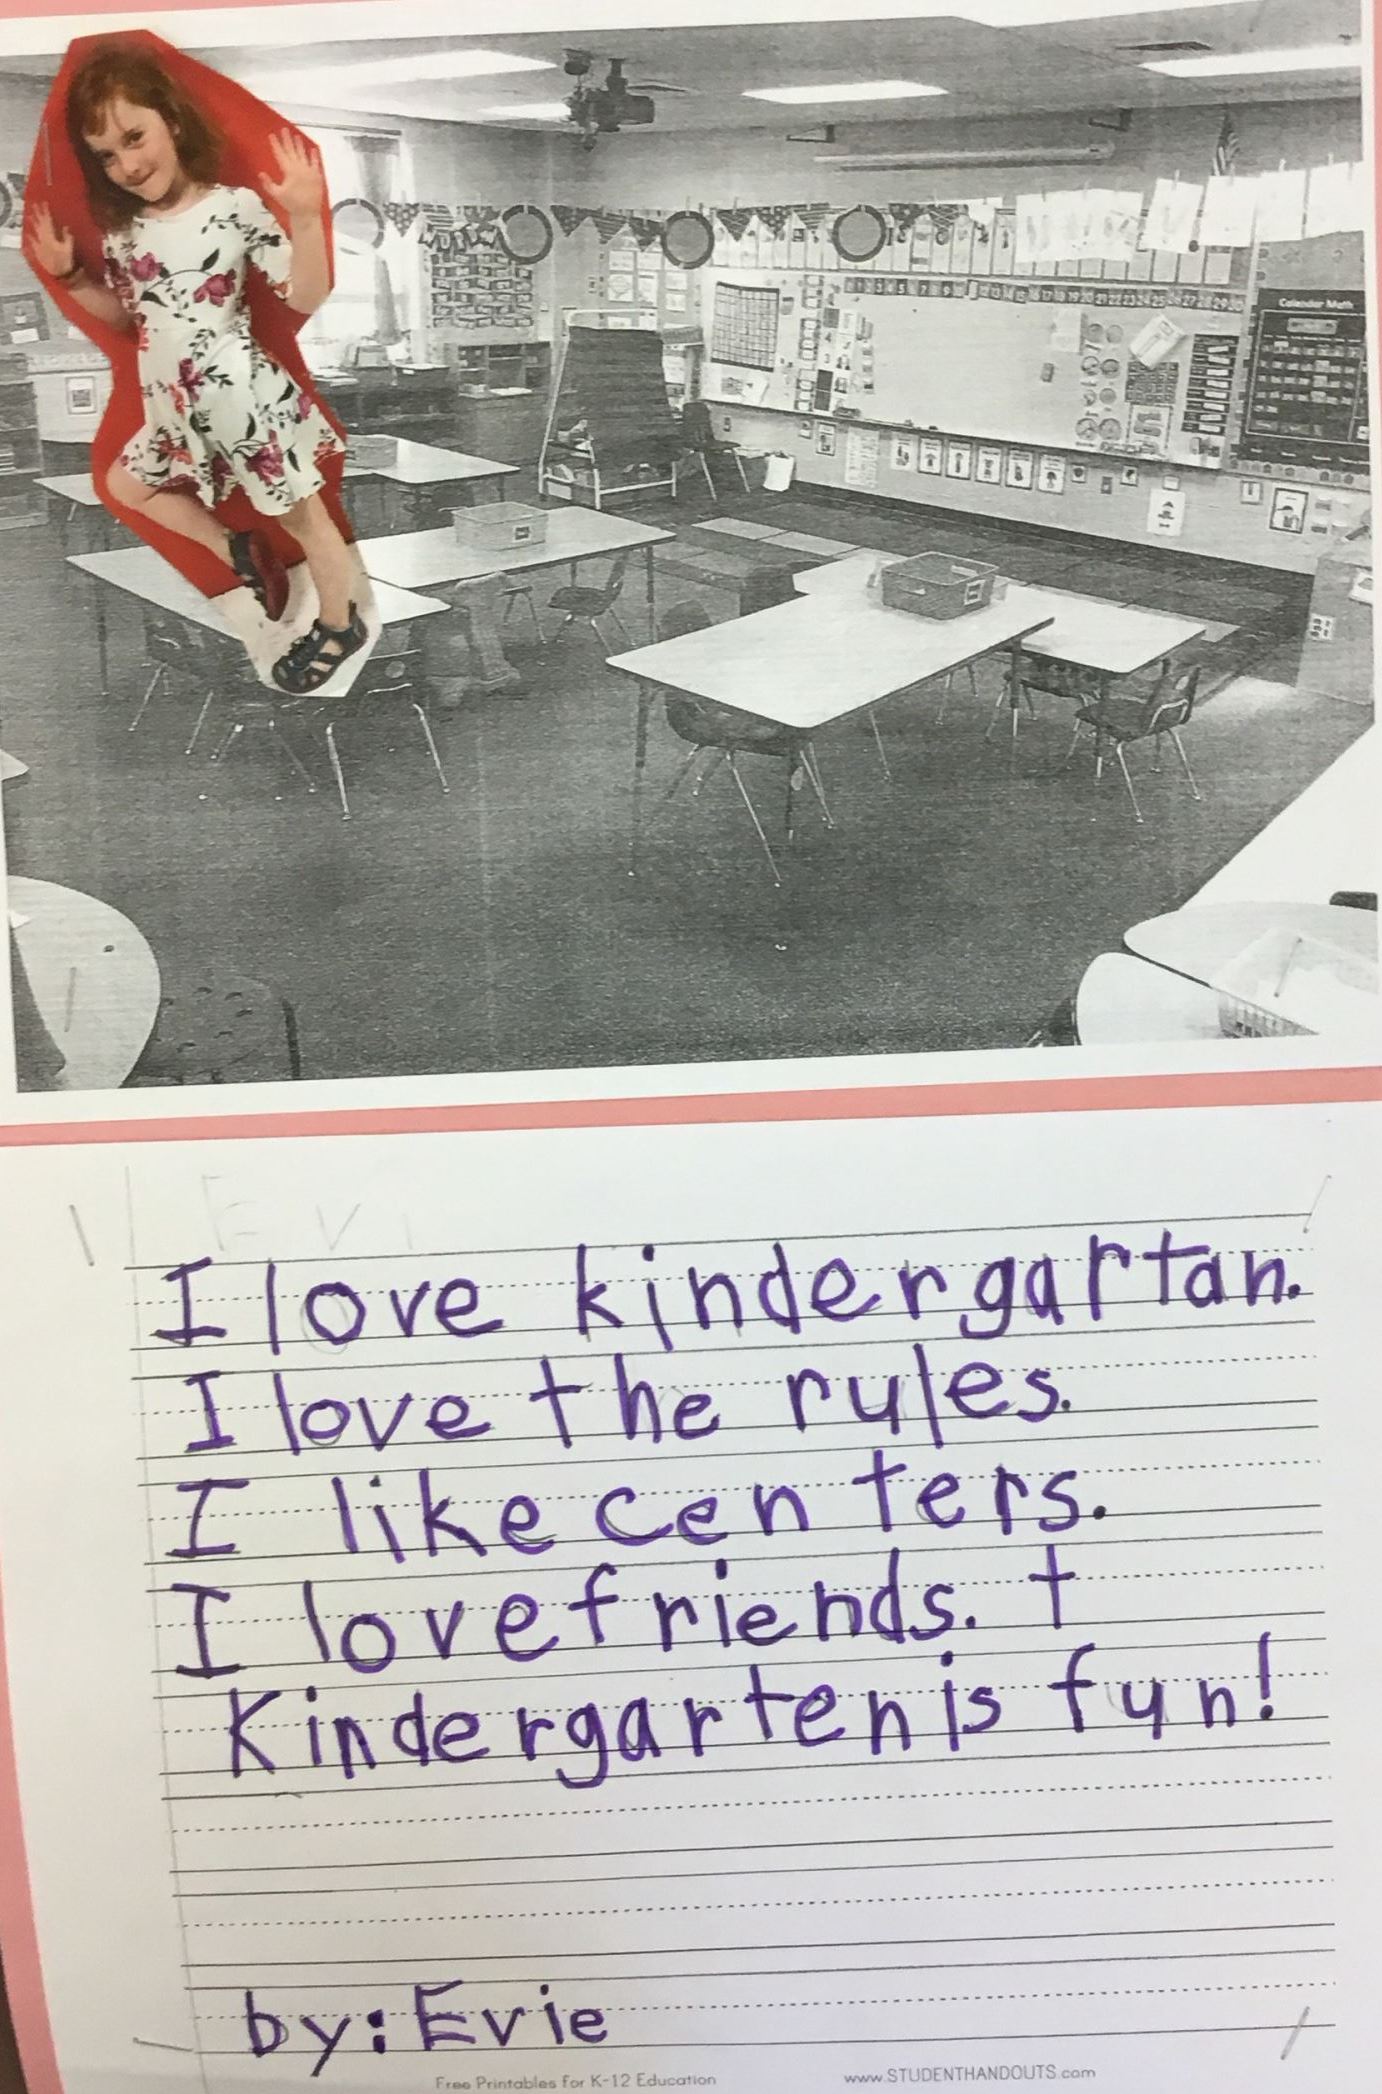 Calendar Math
EVI
I love kindergartan.
I love the rules.
I like centers.
I love friends. t
Kindergarten is fun!
by: Evie
Free Printables for K-12 Education www.STUDENTHANDOUTS.com